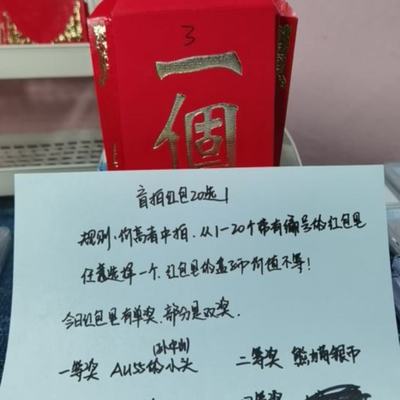 3
一個
盲拍红包20选1
规则：价高者中拍，从1-20个带有编号的红包里
任意选择一个，红包里的盖子币价值不等！
今日红包里有单奖，部分是双奖，
一等奖 AU55的小头
二等奖 熊猫银币